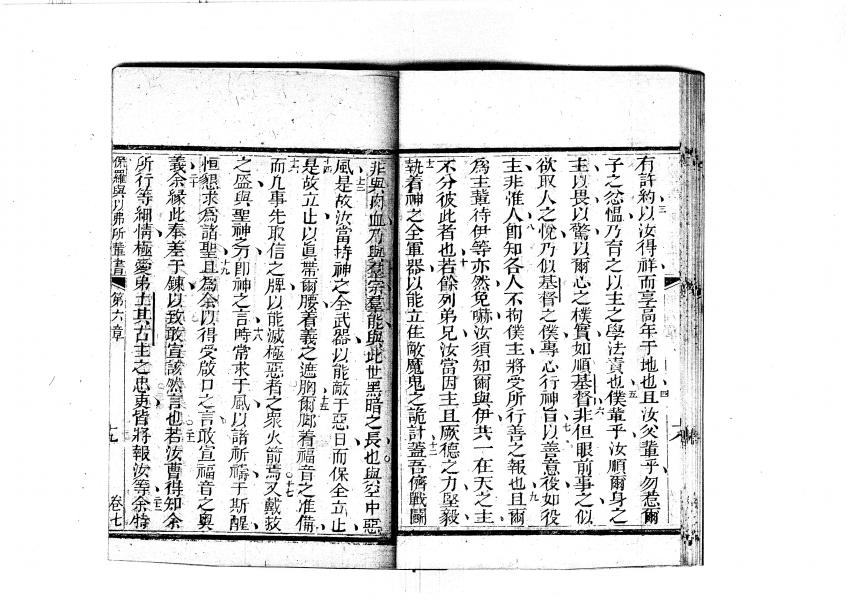 有許約以汝得祥而享高年于地也且汝父輩乎勿惹爾
子之忿慍乃育之以主之學法責也僕輩乎汝順爾身之
主以畏以驚以爾心之樸實如順基督非但眼前事之似
欲取人之悅乃似基督之僕專心行神旨以善意役如役
主非惟人卽知各人不拘僕主將受所行善之報也且爾
為主輩待伊等亦然免嚇汝須知爾與伊共一在天之主
不分彼此者也若餘列弟兄汝當因主且厥德之力堅毅
執着神之全軍器以能立住敵魔鬼之詭計蓋吾儕戰鬬
非與肉血乃與羣宗羣能與此世黑暗之長也與空中惡
風是故汝當持神之全武器以能敵于惡日而保全立止
是故立止以眞帶爾腰着義之遮胸爾腳着福音之准備
而凡事先取信之牌以能滅極惡者之衆火箭焉又戴救
之盔與聖神之刀卽神之言時常求于風以諸祈禱于斯醒
恒懇求為諸聖且為余以得受啟口之言敢宣福音之奧
義余緣此奉差于鍊以致敢宣該然言也若汝曹得知余
所行等細情極愛弟士其古主之忠吏皆將報汝等余特
保羅與以弗所輩書 第六章 十九 卷七